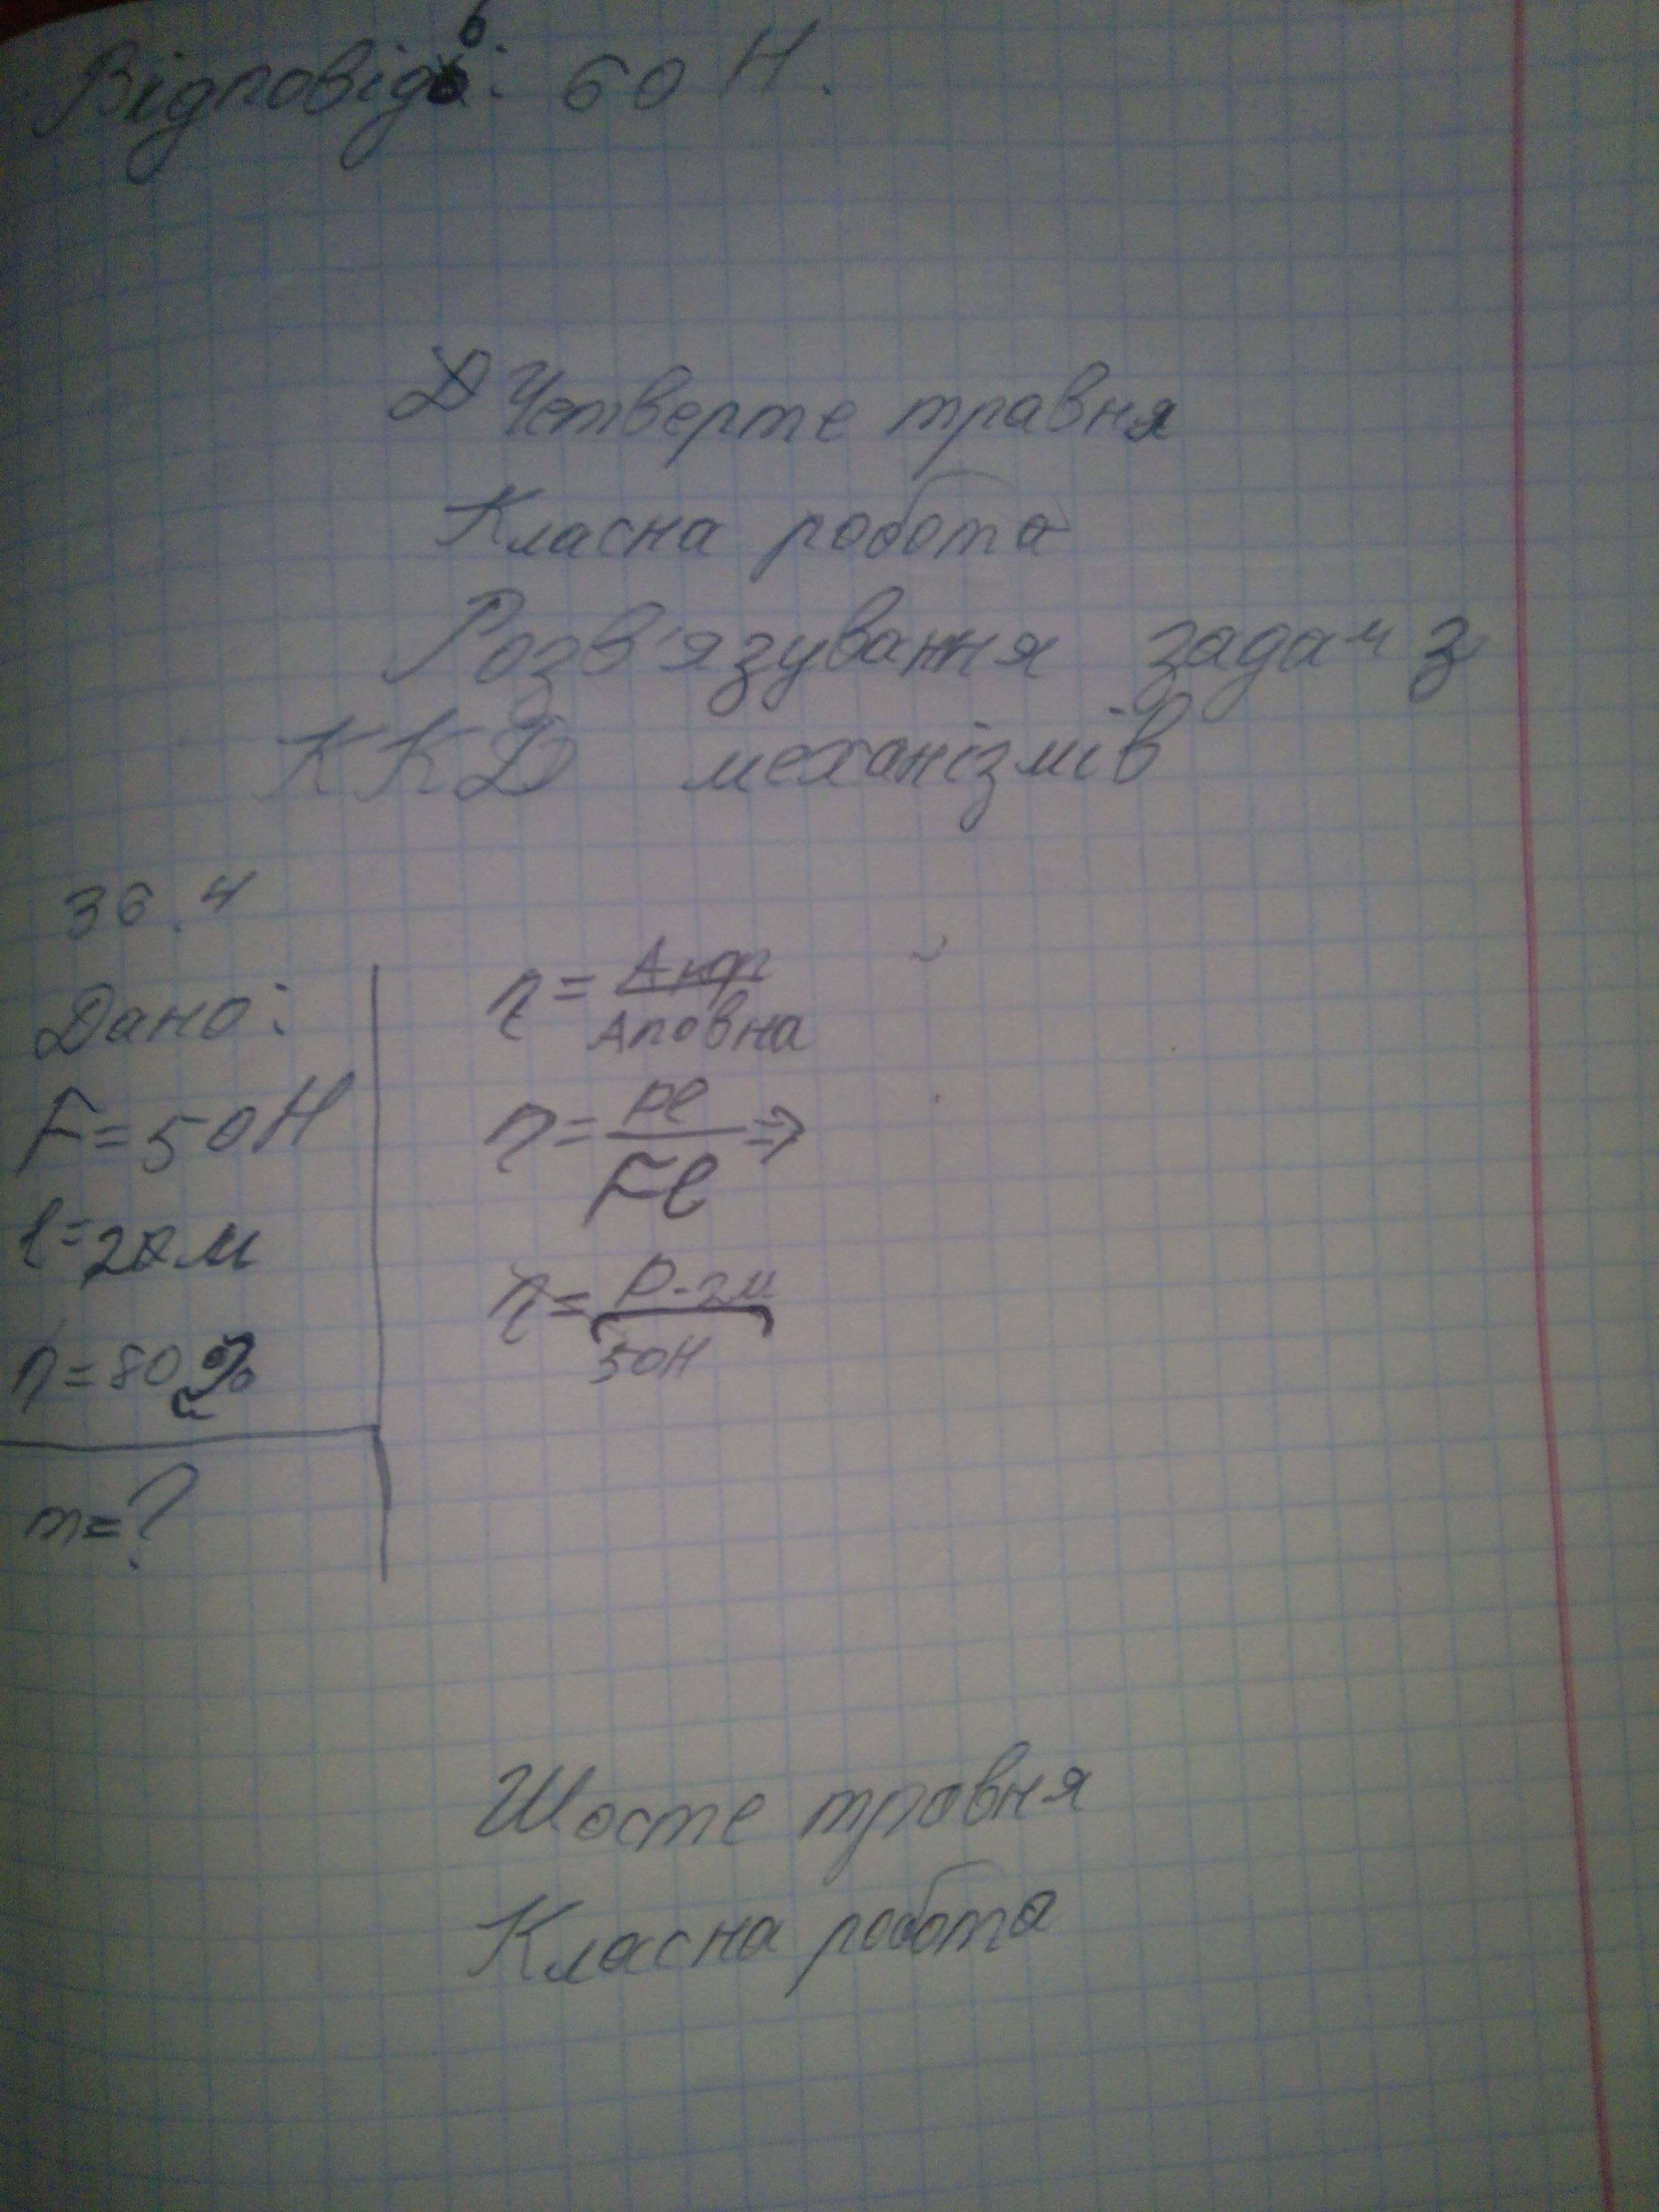 Відповідь: 60 Н.
Четверте травня
Класна робота
Розв'язування задач з
ККД механізмів
36.4
Дано:
F=50Н
l=2м
η=80%
m=?
η=Акор/Аповна
η=Pl/Fl⇒
η=P·2м/50Н
Шосте травня
Класна робота